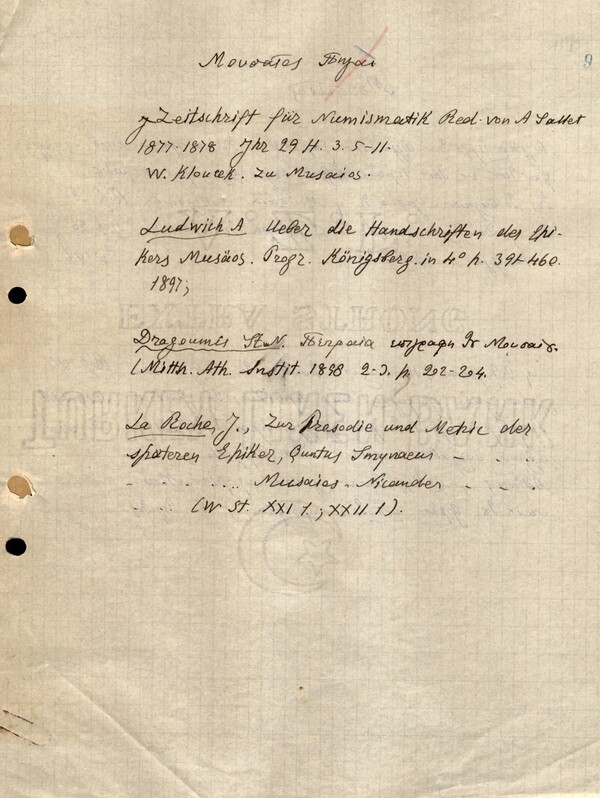 Μουσαῖος Πηγαὶ
9
Zeitschrift für Numismatik Red. von A Sallet
1877-1878 Jhr 29 H. 3. 5-11.
W. Kloucek. Zu Musaios.
Ludwich A Ueber die Handschriften des Epi-
kers Musäos. Progr. Königsberg. in 4° p. 391-460.
1897;
Dragoumis St. N. Μουσαι
(Mitth. Ath. Instit. 1898 2-3. p. 202-204.
La Roche, J., Zur Prosodie und Metric der
späteren Epiker, Quntus Smynaeus - . .
- . . . . . Musaios - Nicander - . . -
(W St. XXI 1.; XXII. 1).